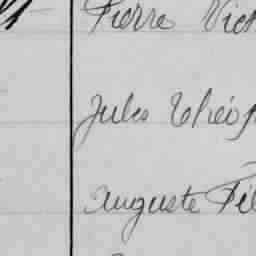 Pierre Vict
Jules Théop
Auguste Fél